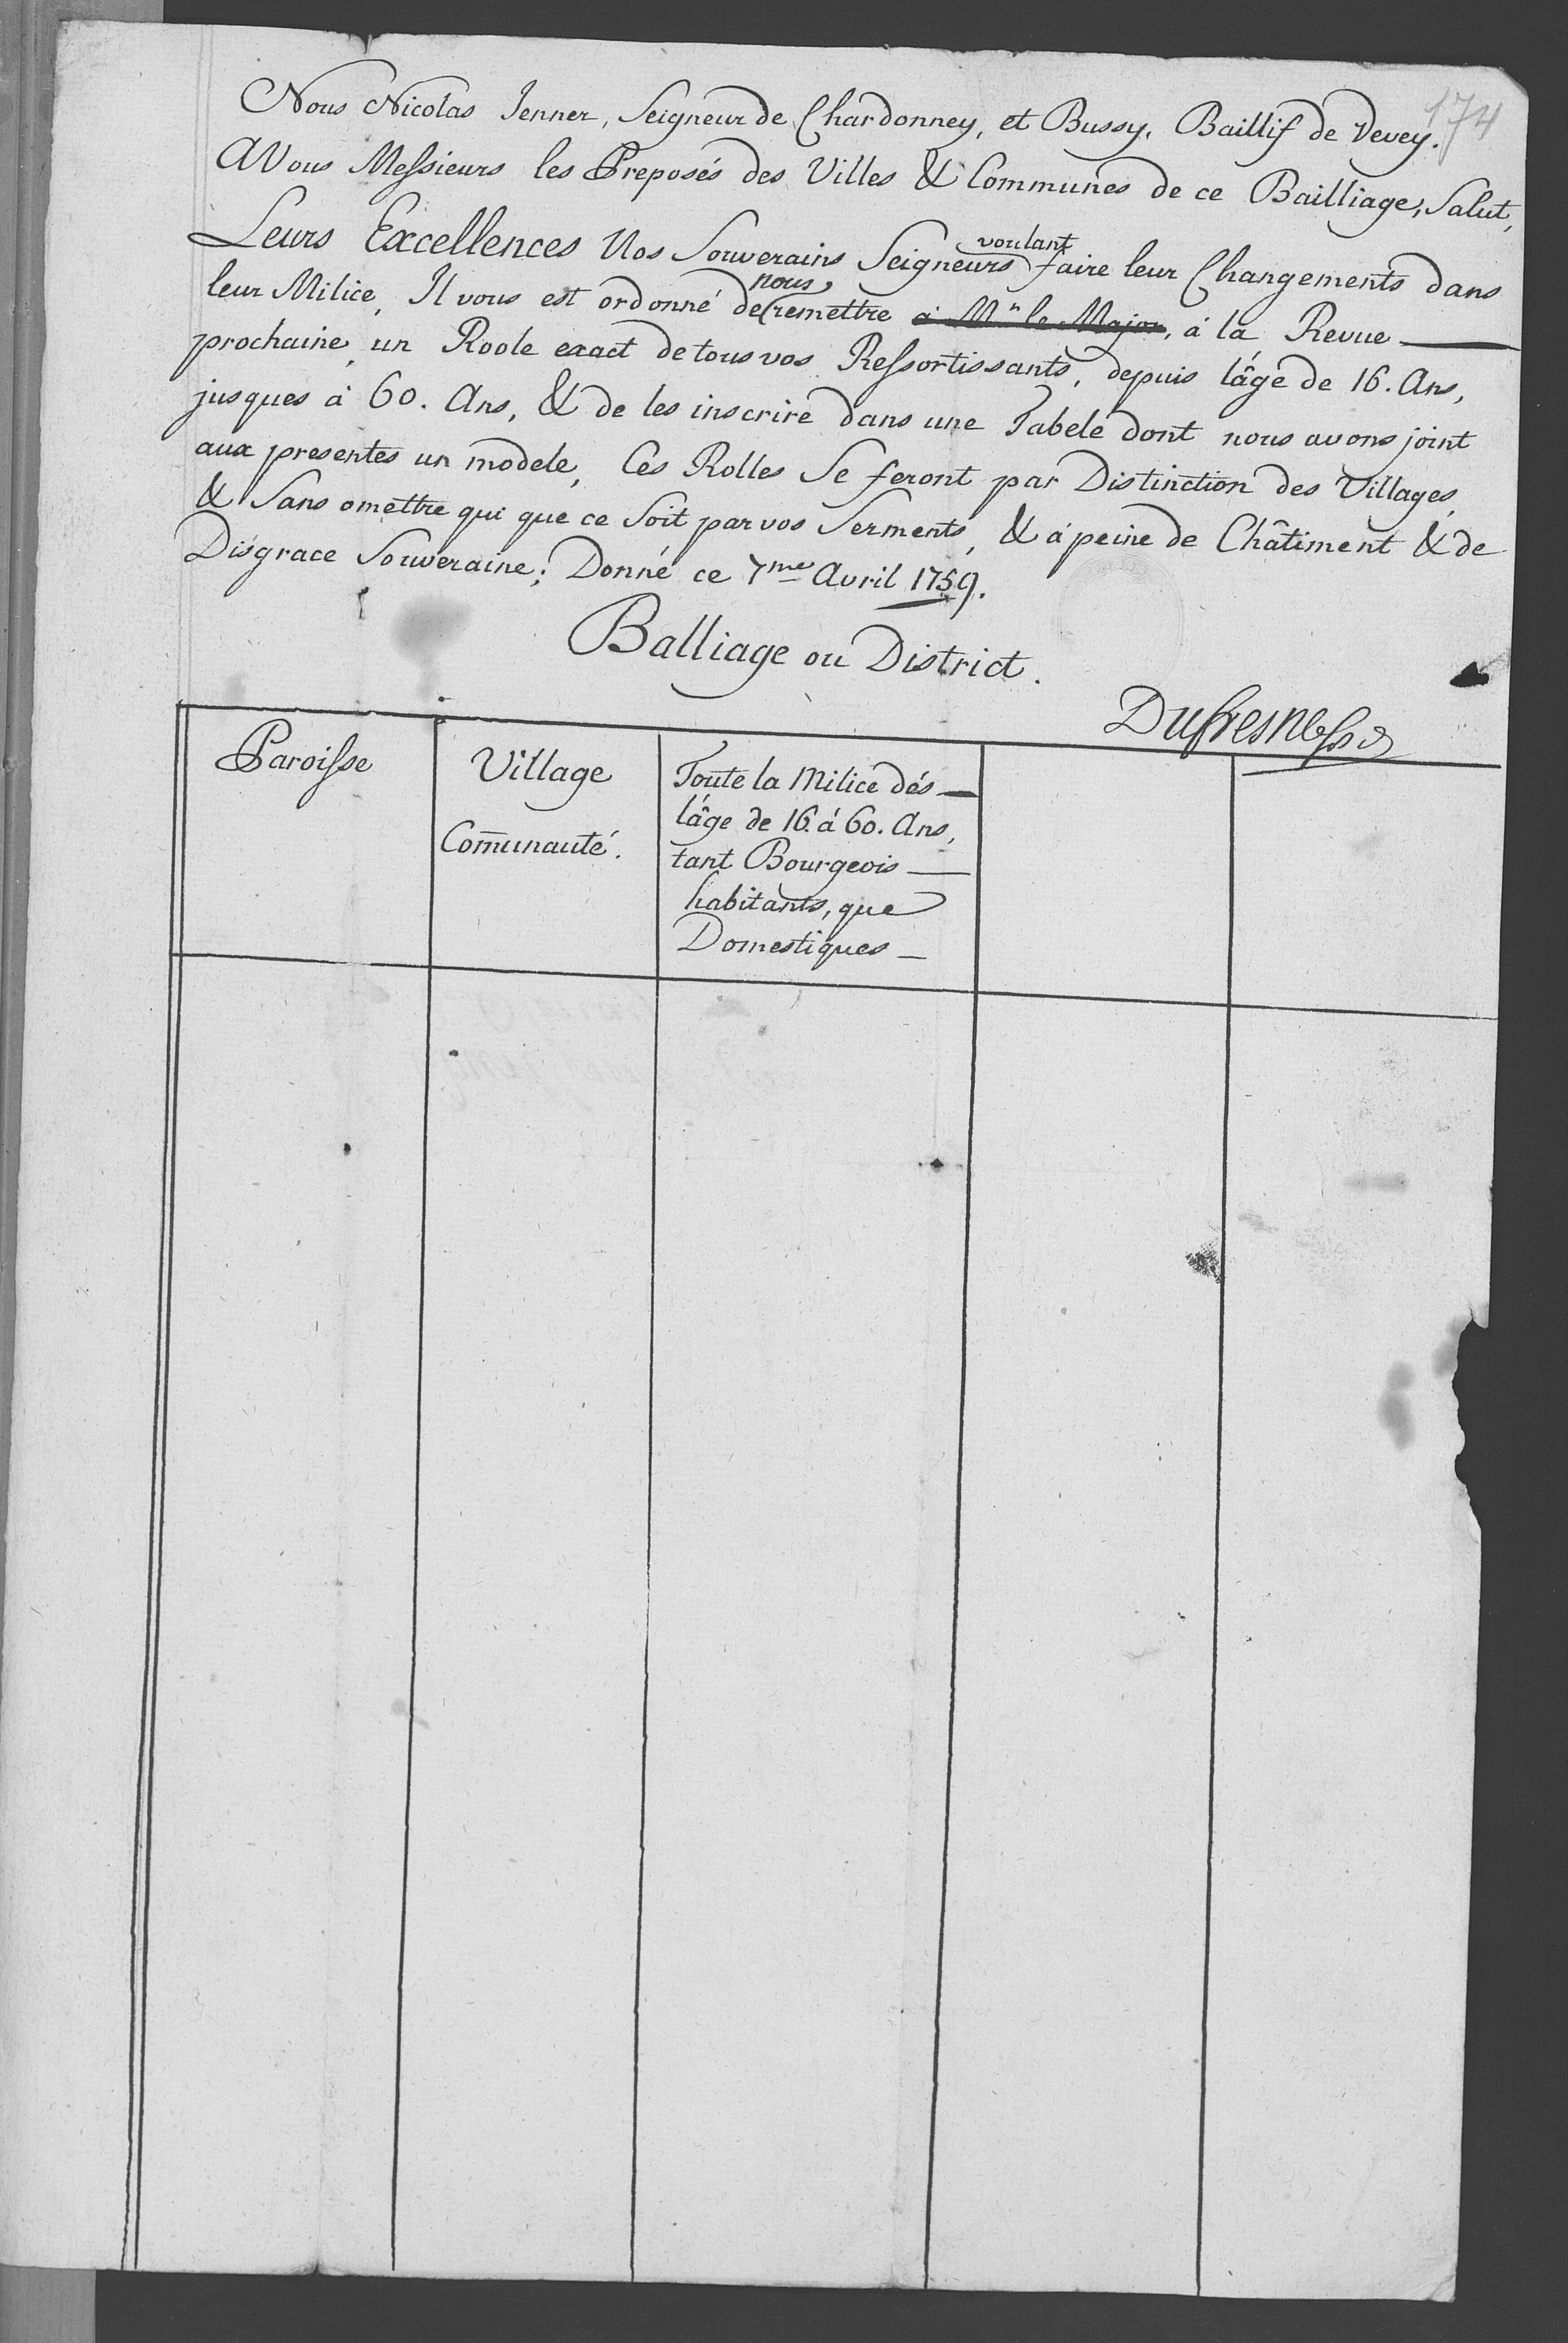 174
Nous Nicolas Jenner, Seigneur de Chardonney, et Bussy, Baillif de Vevey.
A Vous Messieurs les Preposés des Villes & Communes de ce Bailliage, Salut,
Leurs Excellences Nos Souverains Seigneurs voulant faire leur Changements dans
leur Milice, Il vous est ordonné de nous remettre a Mr. le Major, à la Revue
prochaine, un Roole exact de tous vos Ressortissants, depuis lâge de 16. Ans,
jusques à 60. Ans, & de les inscrire dans une Tabele dont nous avons joint
aux presentes un modele, Ces Rolles Se feront par Distinction des Villages,
& Sans omettre qui que ce Soit par vos Serments, & à peine de Châtiment & de
Disgrace Souveraine; Donné ce 7me Avril 1759.
Balliage ou District.
Dufresne
Paroisse
Village
Com̄unauté.
Toute la Milice dés
lâge de 16. á 60. Ans,
tant Bourgeois
habitants, que
Domestiques